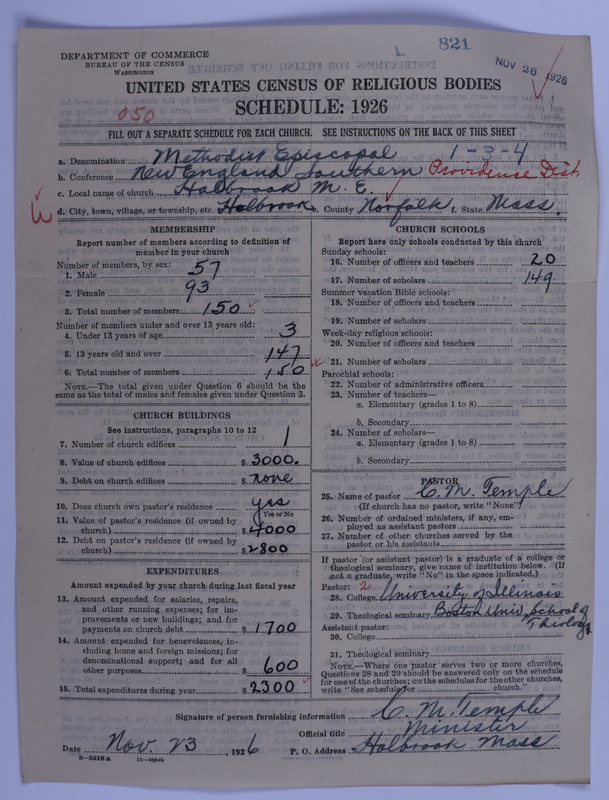 DEPARTMENT OF COMMERCE
BUREAU OF THE CENSUS
WASHINGTON
1 821
NOV 26 1926
UNITED STATES CENSUS OF RELIGIOUS BODIES
SCHEDULE: 1926
050
FILL OUT A SEPARATE SCHEDULE FOR EACH CHURCH. SEE INSTRUCTIONS ON THE BACK OF THIS SHEET
a. Denomination Methodist Episcopal 1-3-4
b. Conference New England Southern Providence Dist
c. Local name of church Holbrook M. E.
d. City, town, village, or township, etc. Holbrook e. County Norfolk f. State Mass.
MEMBERSHIP
Report number of members according to definition of
member in your church
Number of members, by sex:
1. Male 57
2. Female 93
3. Total number of members 150
Number of members under and over 13 years old:
4. Under 13 years of age 3
5. 13 years old and over 147
6. Total number of members 150
NOTE.—The total given under Question 6 should be
same as the total of males and females given under Question 3.
CHURCH BUILDINGS
See instructions, paragraphs 10 to 12
7. Number of church edifices 1
8. Value of church edifices $ 3000.
9. Debt on church edifices $ none
10. Does church own pastor's residence yes
(Yes or No)
11. Value of pastor's residence (if owned by
church) $ 4000
12. Debt on pastor's residence (if owned by
church) $ 2800
EXPENDITURES
Amount expended by your church during last fiscal year
13. Amount expended for salaries, repairs,
and other running expenses; for im-
provements or new buildings; and for
payments on church debt $ 1700
14. Amount expended for benevolences, in-
cluding home and foreign missions; for
denominational support; and for all
other purposes $ 600
15. Total expenditures during year $ 2300
CHURCH SCHOOLS
Report here only schools conducted by this church
Sunday schools:
16. Number of officers and teachers 20
17. Number of scholars 149
Summer vacation Bible schools:
18. Number of officers and teachers
19. Number of scholars
Week-day religious schools:
20. Number of officers and teachers
21. Number of scholars
Parochial schools:
22. Number of administrative officers
23. Number of teachers—
a. Elementary (grades 1 to 8)
b. Secondary
24. Number of scholars—
a. Elementary (grades 1 to 8)
b. Secondary
PASTOR
25. Name of pastor C. M. Temple
(If church has no pastor, write "None")
26. Number of ordained ministers, if any, em-
ployed as assistant pastors
27. Number of other churches served by the
pastor or his assistants
If pastor (or assistant pastor) is a graduate of a college or
theological seminary, give name of institution below. (If
not a graduate, write "No" in the space indicated.)
Pastor: 2
28. College University of Illinois
29. Theological seminary Boston Univ. School of
Theology
Assistant pastor:
30. College
31. Theological seminary
NOTE.—Where one pastor serves two or more churches,
Questions 28 and 29 should be answered only on the schedule
for one of the churches; on the schedules for the other churches,
write "See schedule for church."
Signature of person furnishing information C. M. Temple
Official title Minister
Date Nov. 23, 1926 P. O. Address Holbrook Mass
8—5618a 11—9084b